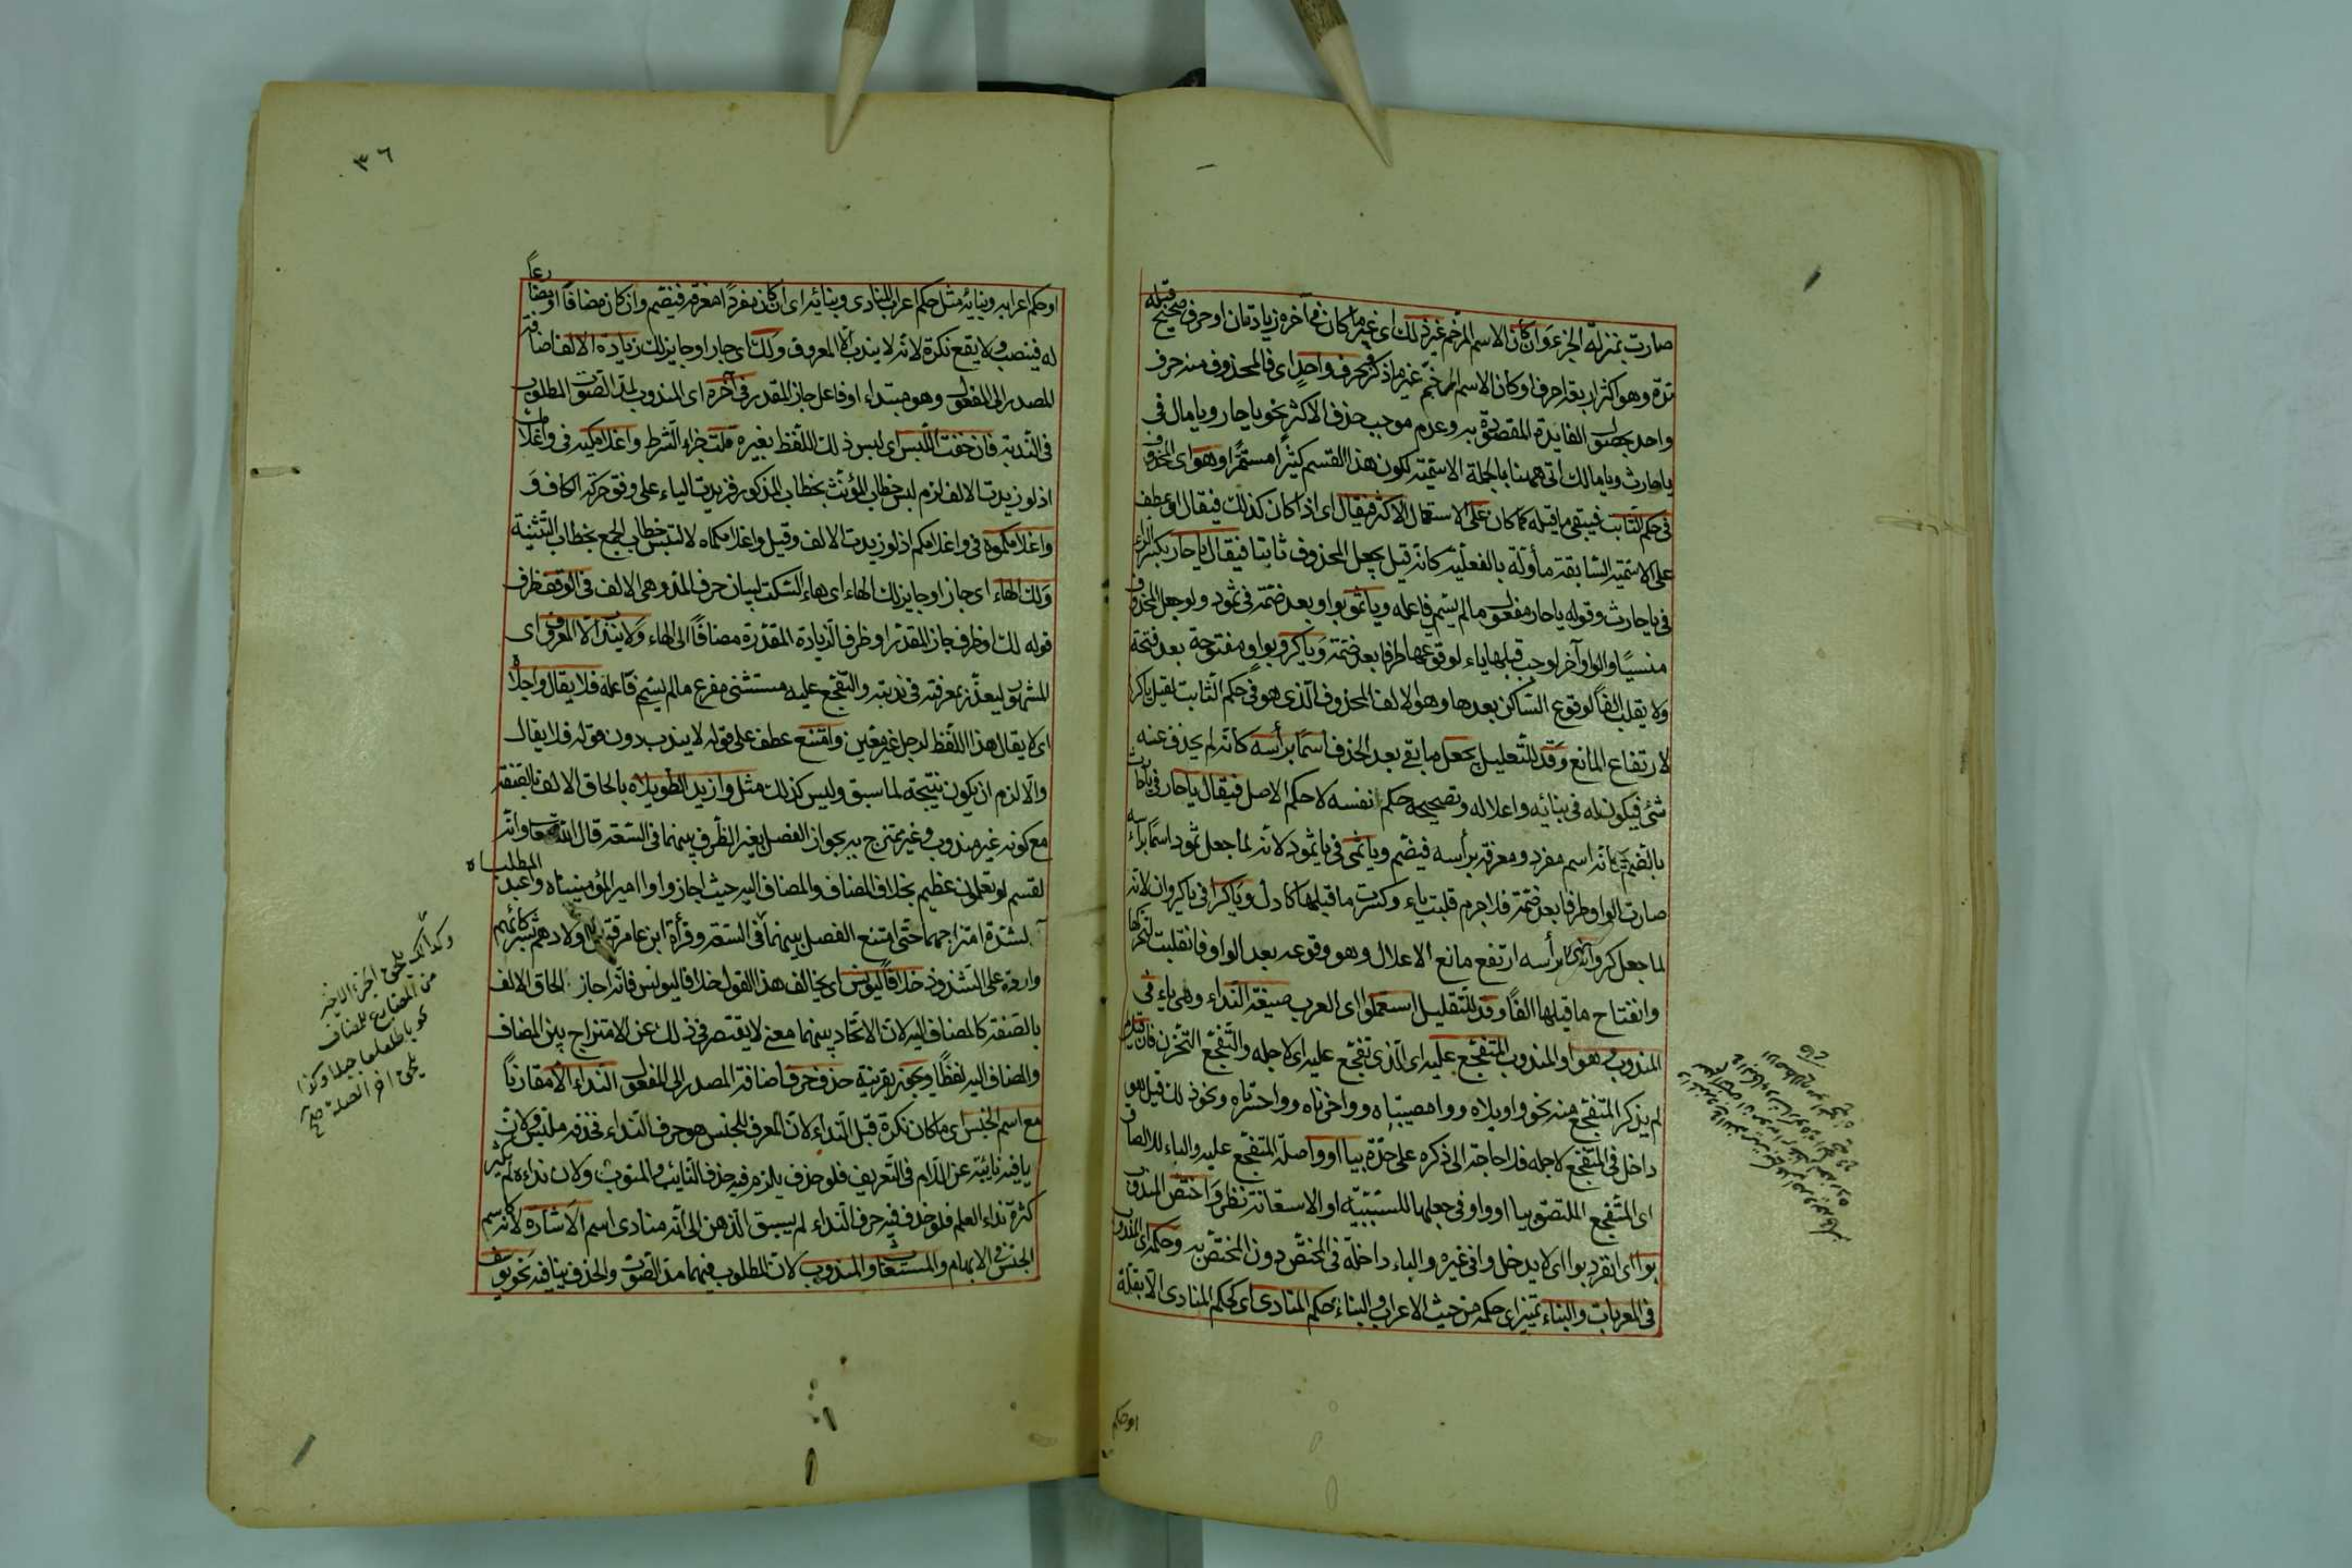 صارت بمنزلة الجزء وان كان الاسم المرخم غير ذلك اى غير ما كان فى آخره زيادتان او حرف صحيح قبله
مدّة وهو اكثر اربعة احرف او كان الاسم المرخّم غير ما ذكر فحرف واحد اى فالمحذوف منه حرف
واحد لحصول الفايدة المقصودة به وعدم موجب حذف الاكثر نحو يا حار ويا مال فى
يا حارث ويا مالك اتى ههنا بالجملة الاسمية لكون هذا القسم كثيرًا مستمرًا وهو اى المحذوف
فى حكم الثابت فيبقى ما قبله كما كان على الاستعمال الاكثر فيقال اى اذا كان كذلك فيقال او عطف
على الاسمية السابقة مأولة بالفعلية كانه قيل يجعل المحذوف ثابتا فيقال يا حار بكسر الراء
فى يا حارث وقوله يا حار مفعول ما لم يسم فاعله ويا ثمو بواو بعد ضمّة فى ثمود ولو جعل المحذوف
منسيًا والواو آخر لوجب قبلها ياء لوقوعها طرفا بعد ضمة ويا كرو بواو مفتوحة بعد فتحة
ولا يقلب الفًا لوقوع الساكن بعدها وهو الالف المحذوف الذى هو فى حكم الثابت لقيل يا كرا
لارتفاع المانع وقد للتعليل يجعل ما بقى بعد الحذف اسمًا برأسه كانه لم يحذف عنه
شئ فيكون له فى بنائه واعلاله وتصحيحه حكم نفسه لا حكم الاصل فيقال يا حار فى يا حارث
بالضم كانه اسم مفرد ومعرفة برأسه فيضم ويا ثمى فى يا ثمود لانه لما جعل ثمود اسمًا برأسه
صارت الواو طرفا بعد ضمة فلا جرم قلبت ياء وكسرت ما قبلها كادل ويا كرا فى يا كروان لانه
لما جعل كرو اسما برأسه ارتفع مانع الاعلال وهو وقوعه بعد الواو فانقلبت لتحركها
وانفتاح ما قبلها الفًا وقد للتقليل استعملوا اى العرب صيغة النداء وهى ياء فى
المندوب وهو او المندوب المتفجّع عليه اى الذى تفجّع عليه اى لاجله والتفجّع التحزن فان قيل
لم يذكر المتفجّع منه نحو واويلاه ووامصيبتاه وواحزناه وواحسرتاه ونحو ذلك قيل هو
داخل فى المتفجّع لاجله فلا حاجة الى ذكره على حدّة بيا او وا صلة المتفجّع عليه والباء للالصاق
اى المتفجّع الملتصق بيا او واو فى جعلها للسببيّة او الاستعانة نظر واختص المندوب
بوا اى انفرد بوا اى لا يدخل وا فى غيره والباء داخلة فى المختص دون المختص به وحكمه اى المندوب
فى المعربات والبناء تميز اى حكمه من حيث الاعراب والبناء حكم المنادى اى كحكم المنادى الا بقلة
او حكم
٣٦
او حكم اعرابه وبنايه مثل حكم اعراب المنادى وبنائه اى ان كان مفردًا معرفة فيضم وان كان مضافًا او مضارعًا
له فينصب ولا يقع نكرة لانه لا يندب الا المعروف ولك اى جاز او جايز لك زيادة الالف اضافة
المصدر الى المفعول وهو مبتداء او فاعل جاز المقدر فى آخره اى المندوب لمدّ الصوت المطلوب
فى الندبة فان خفت اللبس اى لبس ذلك اللفظ بغيره قلت جزاء الشرط واغلامكيه فى واغلامك
اذ لو زيدت الالف لزم لبس خطاب المؤنث بخطاب المذكور فزيدت الياء على وفق حركة الكاف و
واغلامكموه فى واغلامكم اذ لو زيدت الالف وقيل واغلامكماه لالتبس خطاب الجمع بخطاب التثنية
ولك الهاء اى جاز او جايز لك الهاء اى هاء السكت لبيان حرف المد وهى الالف فى الوقف ظرف
قوله لك او ظرف جاز المقدر او ظرف الزيادة المقدرة مضافًا الى الهاء ولا يندب الا المعروف اى
المشهور ليعذر بمعرفته فى ندبته والتفجع عليه مستثنى مفرع ما لم يسم فاعله فلا يقال وارجلاه
اى لا يقال هذا اللفظ لرجل غير معين وامتنع عطف على قوله لا يندب دون قوله فلا يقال
والا لزم ان يكون نتيجة لما سبق وليس كذلك مثل وا زيد الطويلاه بالحاق الالف بالصفة
مع كونه غير مندوب وغير ممتزج به بجواز الفصل بغير الظرف بينهما فى السعة قال الله تعالى وانه
لقسم لو تعلمون عظيم بخلاف المضاف والمضاف اليه حيث اجازوا وا امير المؤمنيناه واعبد المطلباه
لشدة امتزاجهما حتى امتنع الفصل بينهما فى السعة وقرأة ابن عامر قتل اولادهم شركائهم
واردة على الشذوذ خلافًا ليونس اى يخالف هذا القول خلافا ليونس فانه اجاز الحاق الالف
بالصفة كالمضاف اليه لان الاتحاد بينهما معنى لا يقتصر فى ذلك عن الامتزاج بين المضاف
والمضاف اليه لفظًا ويجوز بقرينة حذف حرف اضافة المصدر الى المفعول النداء الا مقارنًا
مع اسم الجنس اى ما كان نكرة قبل النداء لان المعرف للجنس هو حرف النداء فحذفه ملتبس ولان
يا فيه نايبة عن اللام فى التعريف فلو حذف يلزم فيه حذف النائب والمنوب ولان نداءه لم يكثر
كثرة نداء العلم فلو حذف فيه حرف النداء لم يسبق الذهن الى انه منادى اسم الاشارة لانه كاسم
الجنس فى الابهام والمستغاث والمندوب لان المطلوب فيهما مد الصوت والحذف ينافيه نحو يوسف
وكذلك يلحق
من المضارع للمضاف
نحو يا طالعا جبلا وكذا
يلحق آخر الصلة